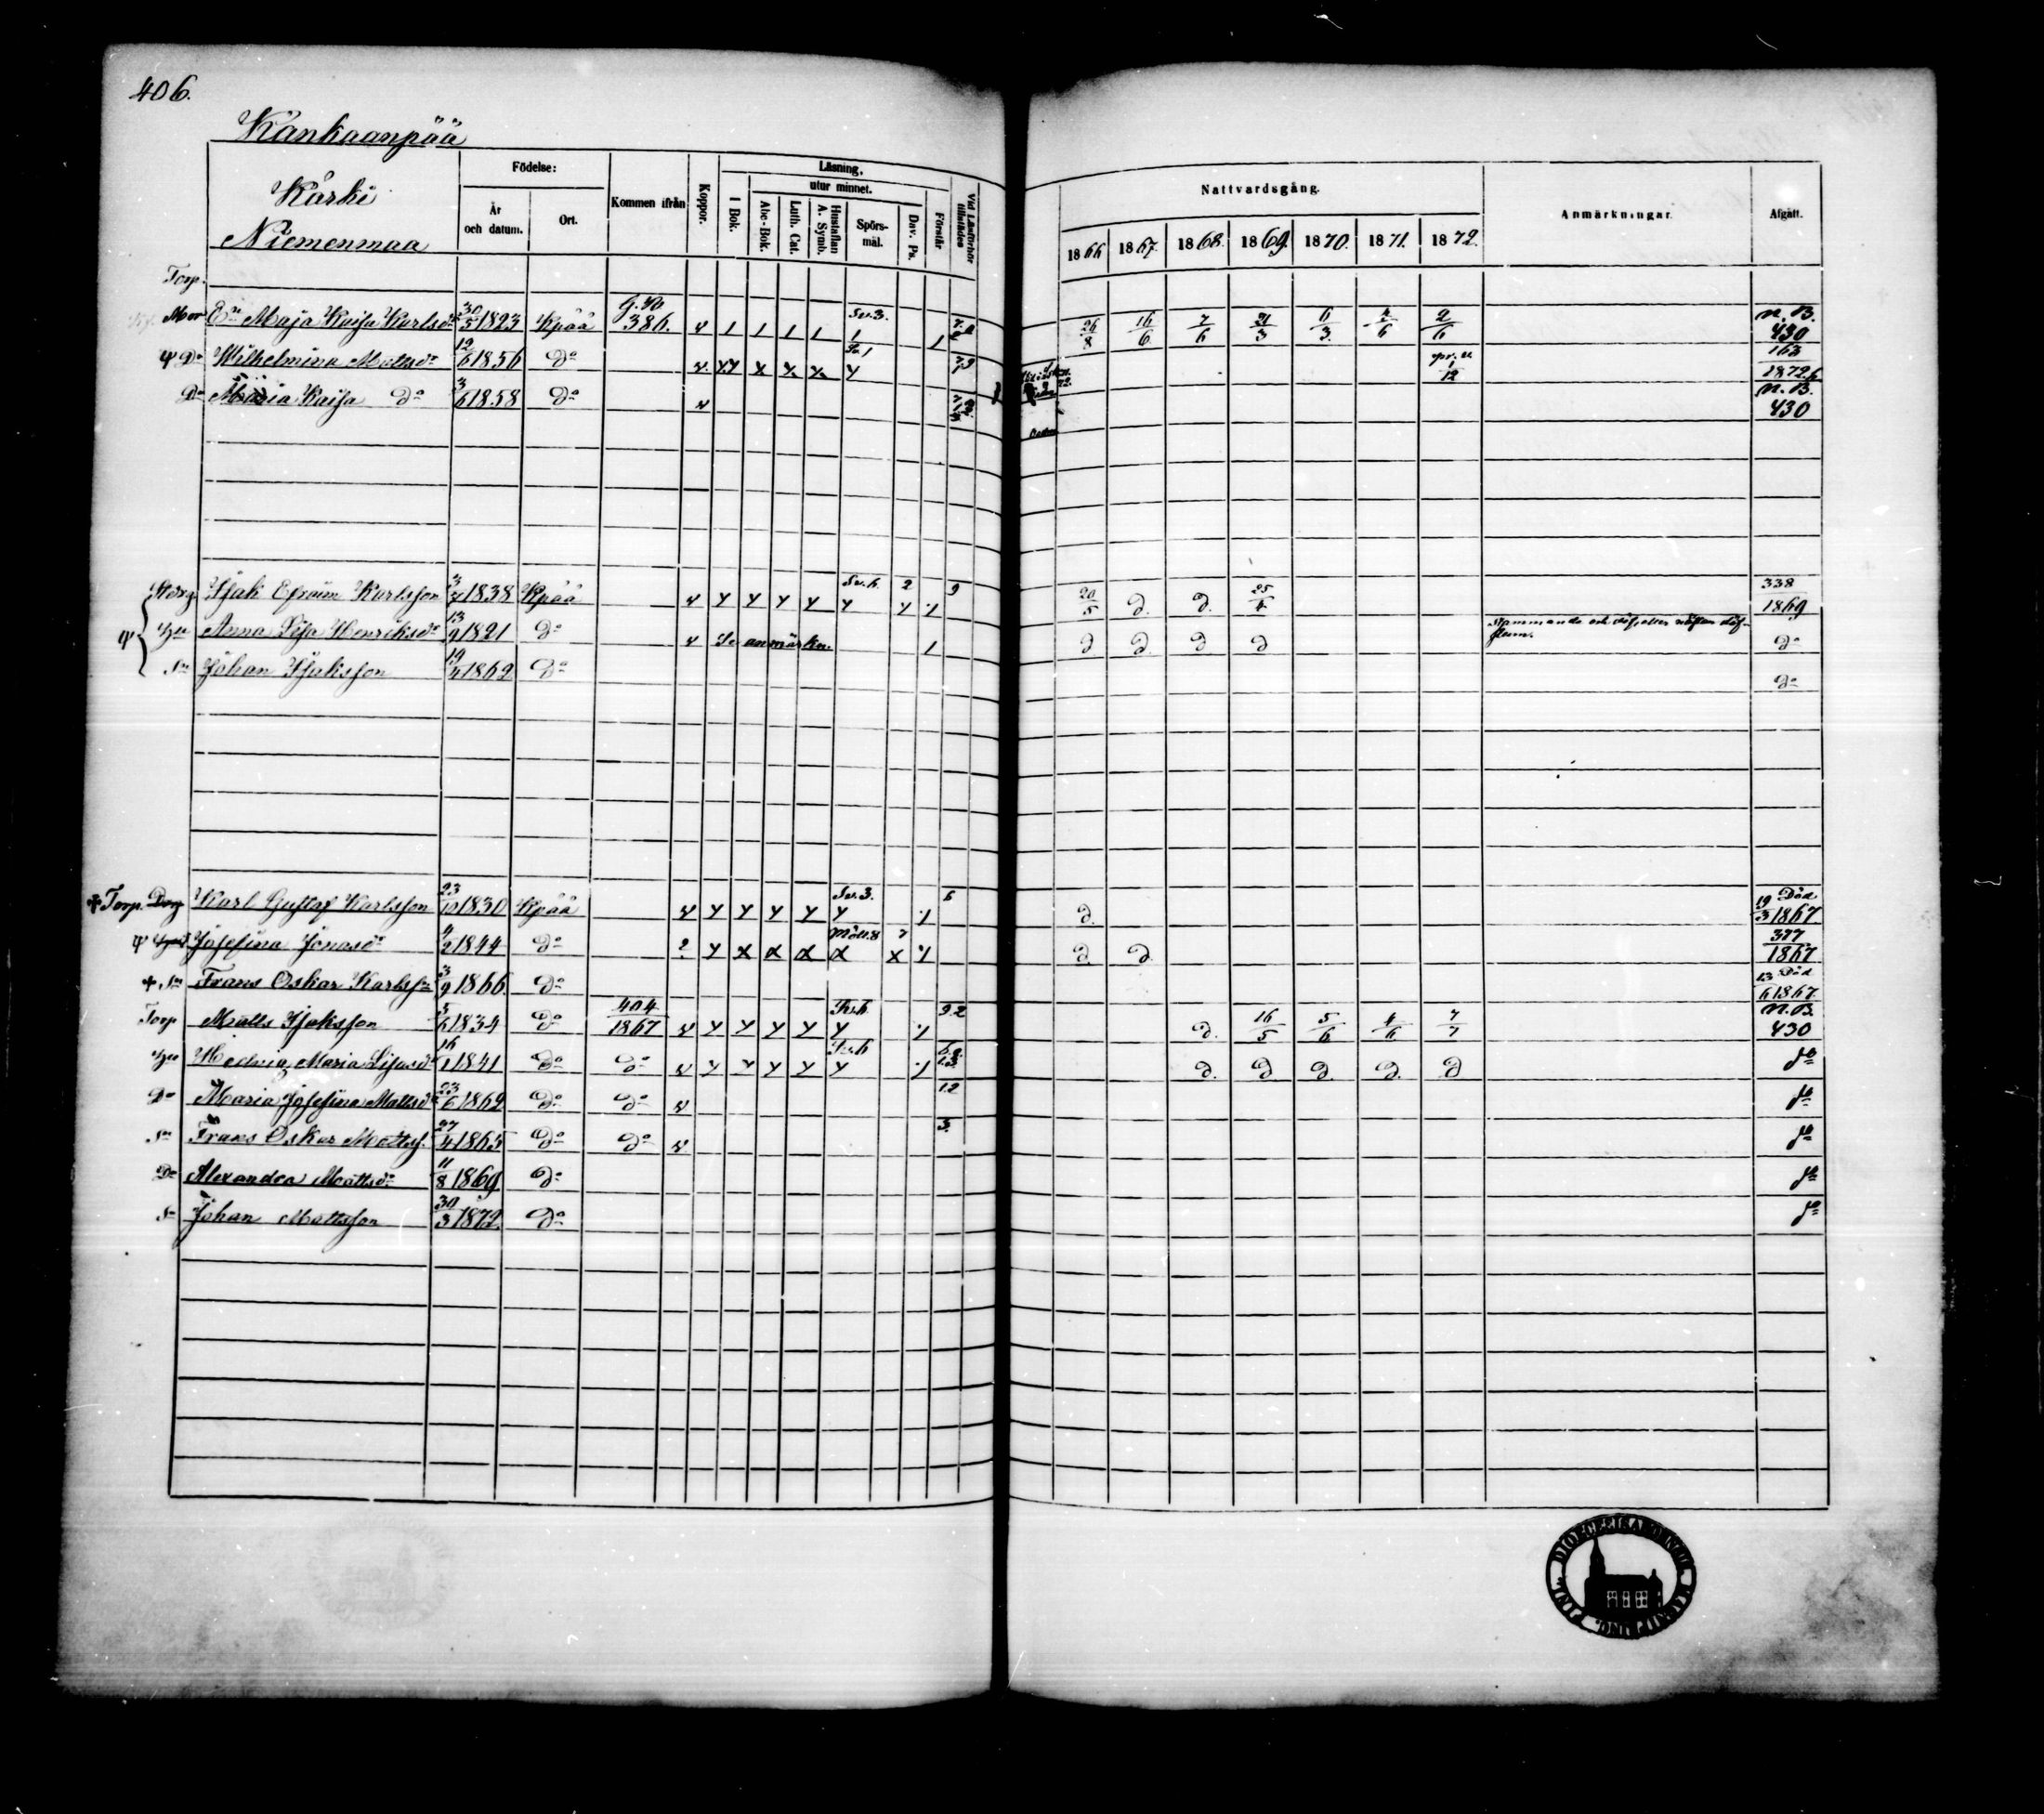 406.
Kankaanpää
Kärki
Niemenmaa
Födelse:
År och datum.
Ort.
Kommen ifrån
Koppor.
Läsning,
I Bok.
utur minnet.
Abc-Bok.
Luth. Cat.
Hustaflan A. Symb.
Spörs-mål.
Dav. Ps.
Förstår
Vid Läsförhör tillstädes
Nattvardsgång.
1866 1867. 1868. 1869. 1870. 1871. 1872.
Anmärkningar.
Afgått.
Torp.
Mor En Maja Kaisa Karlsdr 30/5 1823 Kpää G. So 386. v 1 1 1 1 Sv.3. 1 1 26/8 16/6 7/6 21/3 6/3 4/6 2/6 N.B. 430
Dr Wilhelmina Mattsdr 12/6 1856 Do v. YY x x x Y 1/12 163 1872
Dr Maria Kaisa Do 3/6 1858 Do v N.B. 430
Isak Efraim Karlsson 3/4 1838 Kpää v Y Y Y Y Sv.h. Y 2 Y Y 9 20/5 D. D. 25/4 338 1869
Hu Anna Lisa Henriksdr 13/9 1821 Do v Se anmärkn. 1 D D. D D Stammande och döf, eller nästan döfstum. Do
Sn Johan Isaksson 19/4 1862 Do Do
Torp. Karl Gustaf Karlsson 23/10 1830 Kpää v Y Y Y Y Sv.3. Y Y 6 D. Död 19/3 1867
Josefina Jonasdr 4/2 1844 Do ? Y x α α α x Y D. D. 377 1867
Sn Frans Oskar Karlsson 3/9 1866. Do Död 13/6 1867.
Torp Matts Isaksson 5/6 1834 Do 404 1867 v Y Y Y Y Y Y D. 16/5 5/6 4/6 7/7 N.B. 430
Hu Hedvig Maria Lisasdr 16/1 1841 Do Do v Y Y Y Y Sv.h Y Y D. D D. D. D do
Dr Maria Josefina Mattsdr 23/6 1862 Do Do v 12 do
Sn Frans Oskar Mattss. 27/4 1865 Do Do v 3. do
Dr Alexandra Mattsdr 11/8 1869 Do do
Sn Johan Mattsson 30/3 1872. Do do